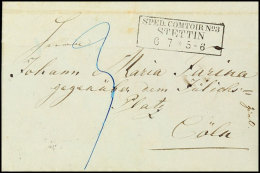 SPED. COMTOIR No3
STETTIN
6 7 5-6
3
Herrn
Johann Maria Farina
gegenüber dem Jülichs-
Platz
Cöln